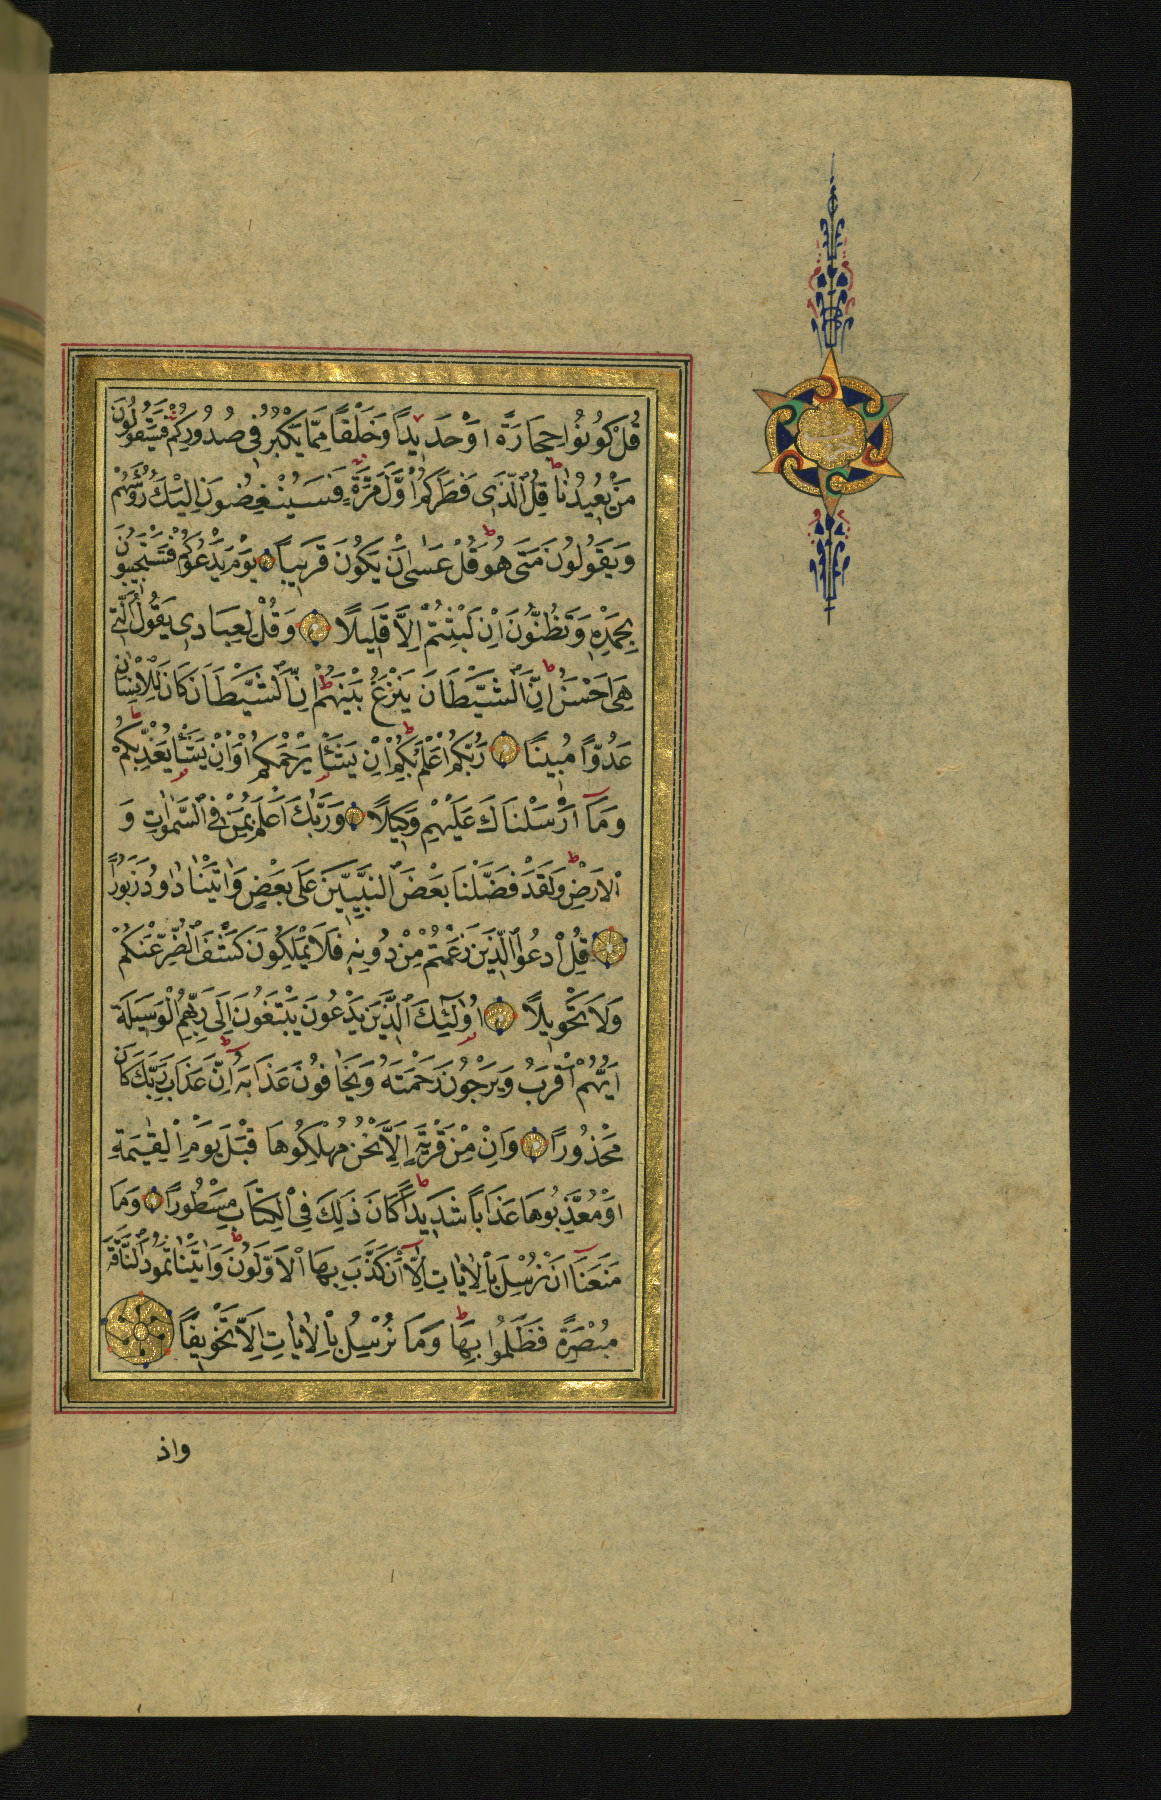 قُلْ كُونُوا حِجَارَةً اَوْ حَدِيدًا وَخَلْقًا مِمَّا يَكْبُرُ فِي صُدُورِكُمْ فَسَيَقُولُونَ
مَنْ يُعِيدُنَا قُلِ الَّذِي فَطَرَكُمْ اَوَّلَ مَرَّةٍ فَسَيُنْغِضُونَ اِلَيْكَ رُؤُسَهُمْ
وَيَقُولُونَ مَتٰى هُوَ قُلْ عَسٰى اَنْ يَكُونَ قَرِيبًا يَوْمَ يَدْعُوكُمْ فَتَسْتَجِيبُونَ
بِحَمْدِهٖ وَتَظُنُّونَ اِنْ لَبِثْتُمْ اِلَّا قَلِيلًا وَقُلْ لِعِبَادِي يَقُولُوا الَّتِي
هِيَ اَحْسَنُ اِنَّ الشَّيْطَانَ يَنْزَغُ بَيْنَهُمْ اِنَّ الشَّيْطَانَ كَانَ لِلْاِنْسَانِ
عَدُوًّا مُبِينًا رَبُّكُمْ اَعْلَمُ بِكُمْ اِنْ يَشَأْ يَرْحَمْكُمْ اَوْ اِنْ يَشَأْ يُعَذِّبْكُمْ
وَمَا اَرْسَلْنَاكَ عَلَيْهِمْ وَكِيلًا وَرَبُّكَ اَعْلَمُ بِمَنْ فِي السَّمٰوَاتِ وَ
الْاَرْضِ وَلَقَدْ فَضَّلْنَا بَعْضَ النَّبِيِّينَ عَلٰى بَعْضٍ وَاٰتَيْنَا دٰاوُدَ زَبُورًا
قُلِ ادْعُوا الَّذِينَ زَعَمْتُمْ مِنْ دُونِهٖ فَلَا يَمْلِكُونَ كَشْفَ الضُّرِّ عَنْكُمْ
وَلَا تَحْوِيلًا اُولٰئِكَ الَّذِينَ يَدْعُونَ يَبْتَغُونَ اِلٰى رَبِّهِمُ الْوَسِيلَةَ
اَيُّهُمْ اَقْرَبُ وَيَرْجُونَ رَحْمَتَهُ وَيَخَافُونَ عَذَابَهُ اِنَّ عَذَابَ رَبِّكَ كَانَ
مَحْذُورًا وَاِنْ مِنْ قَرْيَةٍ اِلَّا نَحْنُ مُهْلِكُوهَا قَبْلَ يَوْمِ الْقِيٰمَةِ
اَوْ مُعَذِّبُوهَا عَذَابًا شَدِيدًا كَانَ ذٰلِكَ فِي الْكِتَابِ مَسْطُورًا وَمَا
مَنَعَنَا اَنْ نُرْسِلَ بِالْاٰيَاتِ اِلَّا اَنْ كَذَّبَ بِهَا الْاَوَّلُونَ وَاٰتَيْنَا ثَمُودَ النَّاقَةَ
مُبْصِرَةً فَظَلَمُوا بِهَا وَمَا نُرْسِلُ بِالْاٰيَاتِ اِلَّا تَخْوِيفًا
واذ